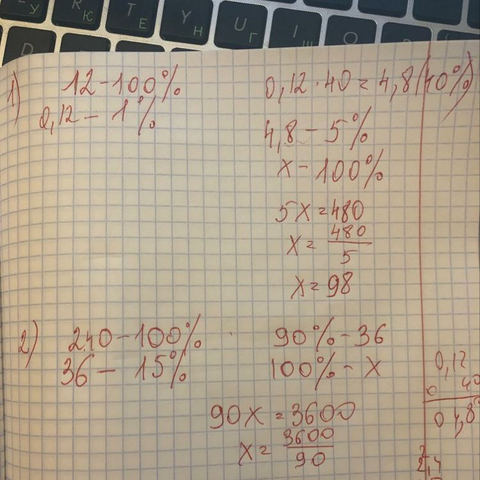 К Е Н Г Ш
R T Y U I
1) 12 - 100%
0,12 - 1%
0,12 · 40 = 4,8 (40%)
4,8 - 5%
x - 100%
5x = 480
x = 480/5
x = 98
2) 240 - 100%
36 - 15%
90% - 36
100% - x
90x = 3600
x = 3600/90
0,12
40
04,8
2,4